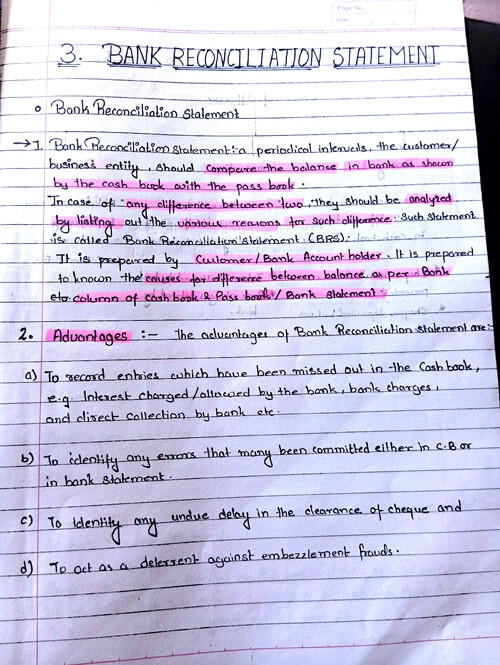 Page No.
Date
3. BANK RECONCILIATION STATEMENT
o Bank Reconciliation Statement
→1. Bank Reconciliation Statement:- a periodical intervels, the customer/
business entity, should compare the balance in bank as shown
by the cash book with the pass book.
In case of any difference between two, they should be analyzed
by listing out the various reasons for such difference. Such statement
is called Bank Reconciliation Statement (BRS).
It is prepaired by Customer/Bank Account holder. It is prepared
to known the causes for difference between balance as per Bank
column of cash book & Pass book/Bank Statement.
2. Advantages :- The advantages of Bank Reconciliation statement are:-
a) To record entries which have been missed out in the Cash book,
e.g. Interest charged/allowed by the bank, bank charges,
and direct collection by bank etc.
b) To identify any errors that many been committed either in C.B or
in bank statement.
c) To Identify any undue delay in the clearance of cheque and
d) To act as a deterrent against embezzlement frauds.